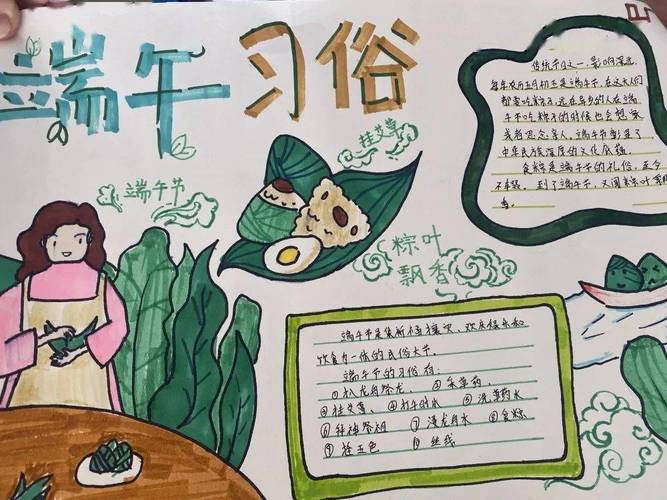 端午习俗
端午节
挂艾草
粽叶
飘香
传统节日之一，影响深远
每年农历五月初五是端午节，在这天人们
都要吃粽子，远在异乡的人在端
午吃粽子的时候也会想家
我者思念亲人，端午节凝聚了
中华民族深厚的文化底蕴
食粽是端午节的礼俗，至今
不衰。到了端午节，又闻粽叶飘
香
端午节是集祈福禳灾、欢庆娱乐和
饮食为一体的民俗大节。
端午节的习俗有：
①扒龙舟祭龙、②采草药、
③挂艾草、④打午时水 ⑤洗草药水
⑥拜神祭祖 ⑦浸龙舟水 ⑧食粽
⑨拴五色 丝线